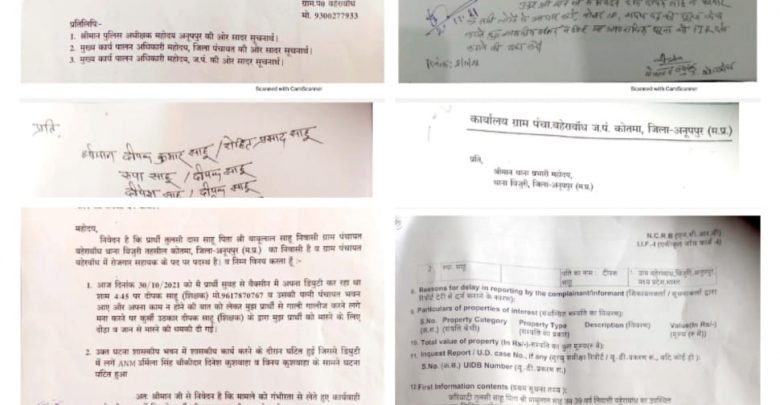 ग्राम.पं० बहेराबाँध
मो. 9300277933
प्रतिलिपि:-
1. श्रीमान पुलिस अधीक्षक महोदय अनूपपुर की ओर सादर सूचनार्थ।
2. मुख्य कार्य पालन अधिकारी महोदय, जिला पंचायत की ओर सादर सूचनार्थ।
3. मुख्य कार्य पालन अधिकारी महोदय, ज.पं. की ओर सादर सूचनार्थ।
Scanned with CamScanner
Scanned with CamScanner
प्रति,
श्रीमान दीपक कुमार साहू / रोहित प्रसाद साहू
रूपा साहू / दीपक साहू
दीपेश साहू / दीपक साहू
कार्यालय ग्राम पंचा.बहेराबाँध ज.पं. कोतमा, जिला-अनूपपुर (म.प्र.)
प्रति,
श्रीमान थाना प्रभारी महोदय,
थाना बिजुरी, जिला-अनूपपुर (म.प्र.)
महोदय,
निवेदन है कि प्रार्थी तुलसी दास साहू पिता श्री बाबूलाल साहू निवासी ग्राम पंचायत
बहेराबाँध थाना बिजुरी तहसील कोतमा, जिला-अनूपपुर (म.प्र.) का निवासी है व ग्राम पंचायत
बहेराबाँध में रोजगार सहायक के पद पर पदस्थ है। व निम्न विनय करता है :-
1. आज दिनांक 30/10/2021 को मे प्रार्थी सुबह से वैक्सीन मे अपना डियुटी कर रहा था
शाम 4:45 पर दीपक साहू (शिक्षक) मो.9617870767 व उसकी पत्नी पंचायत भवन
आए और अपना काम न होने की बात को लेकर मुझ प्रार्थी से गाली गालौज करने लगे
मना करने पर कुर्सी उठाकर दीपक साहू (शिक्षक) के द्वारा मुझ प्रार्थी को मारने के लिए
दौड़ा व जान से मारने की धमकी दी गई।
2. उक्त घटना शासकीय भवन में शासकीय कार्य करने के दौरान घटित हुई जिसमे डिपुटी
में लगें ANM उर्मिला सिंह चौकीदार दिनेश कुशवाहा व विनय कुशवाहा के सामने घटना
घटित हुआ
अतः श्रीमान जी से निवेदन है कि मामले को गंभीरता से लेते हुए कार्यवाही
N.C.R.B (एन.सी.आर.बी)
I.I.F.-I (एकीकृत जाँच फार्म 1)
2. रूपा साहू
पति का नाम : दीपक साहू
1. ग्राम बहेराबांध,बिजुरी,अनूपपुर,
मध्य प्रदेश,भारत
8. Reasons for delay in reporting by the complainant/informant (शिकायतकर्ता / सूचनाकर्ता द्वारा
रिपोर्ट देरी से दर्ज कराने के कारण):
9. Particulars of properties of interest (संबंधित सम्पत्ति का विवरण):
S.No. Property Category Property Type Description (विवरण) Value(In Rs/-)
(क्र.सं.) (संपत्ति श्रेणी) (सम्पत्ति का प्रकार) (मूल्य (रु में))
10. Total value of property (In Rs/-)-सम्पत्ति का कुल मूल्य(रु में):
11. Inquest Report / U.D. case No., if any (मृत्यु समीक्षा रिपोर्ट / यू.डी.प्रकरण सं., यदि कोई हो):
S.No. (क्र.सं.) UIDB Number (यू.डी.प्रकरण सं.)
12. First Information contents (प्रथम सूचना तथ्य ):
फरियादी तुलसी साहू पिता श्री बाबूलाल साहू उम्र 39 वर्ष निवासी बहेराबांध का उपस्थित